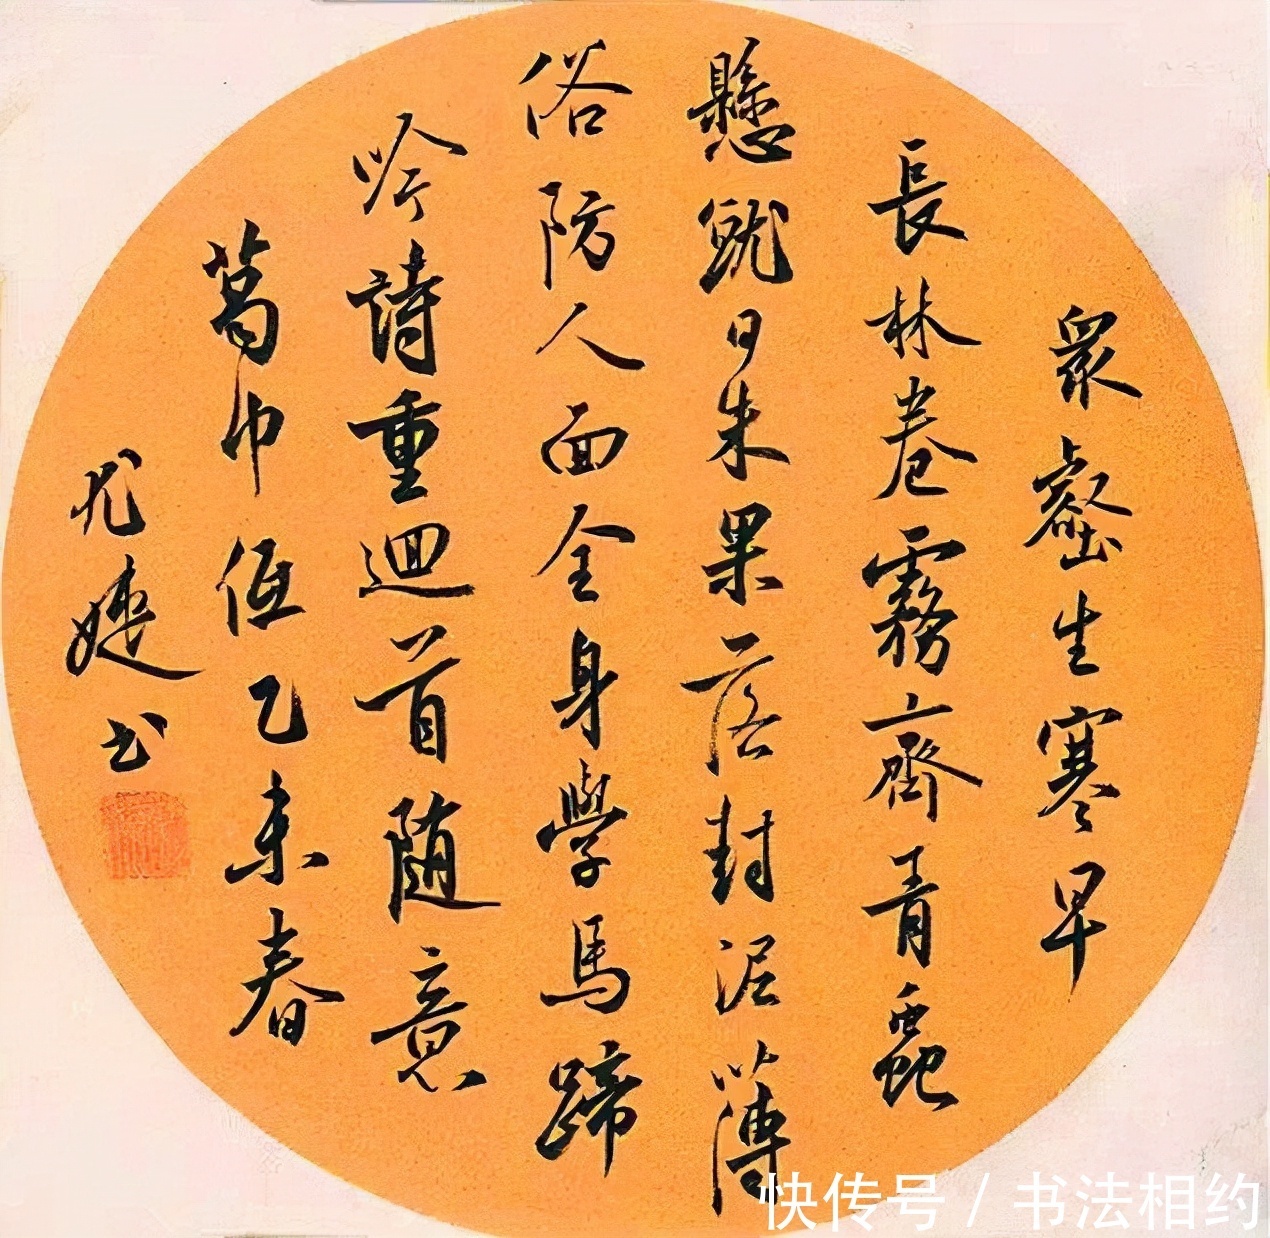 衆壑生寒早
長林卷霧齊青蟲
懸就日朱果落封泥薄
俗防人面全身學馬蹄
吟詩重迴首随意
葛巾低乙未春
尤婕书
快传号 / 书法相约